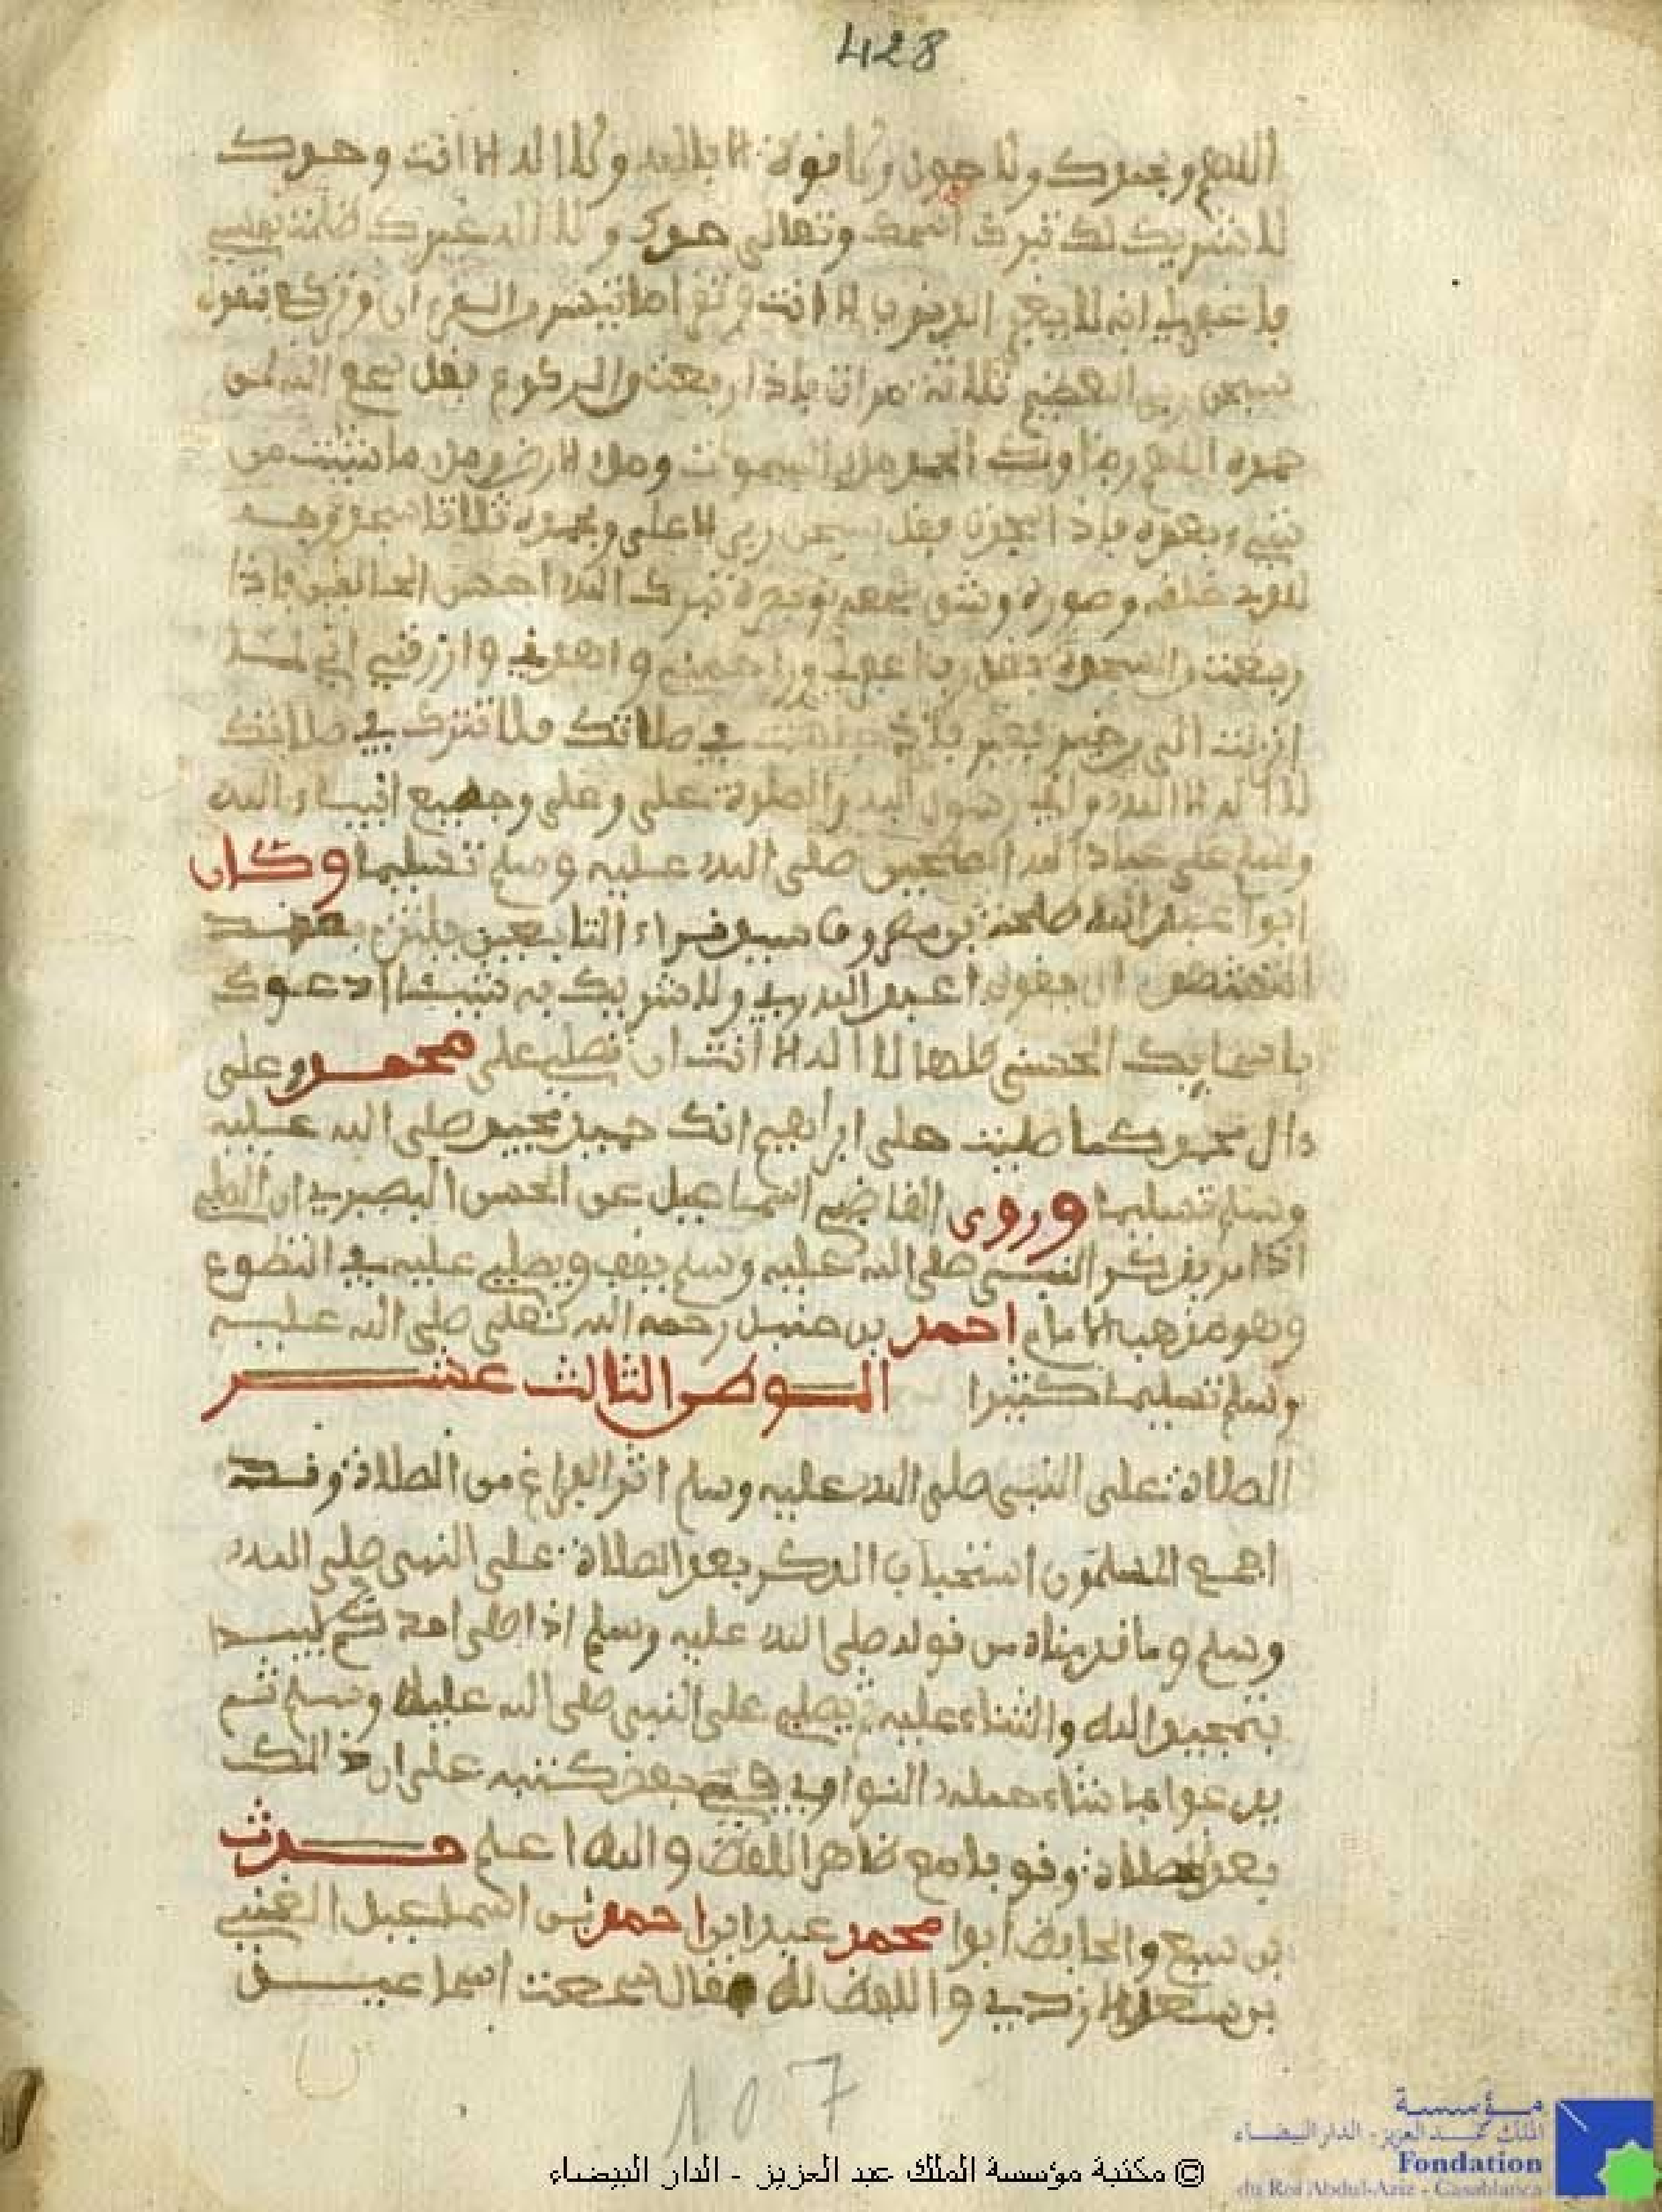 428
اللهم وبحمدك ولا حول ولا قوة الا بالله ولا اله الا انت وحدك
لا شريك لك تبرك اسمك وتعالى جدك ولا اله غيرك ظلمت نفسي
فاغفرلي انه لا يغفر الذنوب الا انت وتقرا ما تيسر من القرءان وتركع تقول
سبحن ربي العظيم ثلاثة مرات فاذا رفعت من الركوع فقل سمع الله لمن
حمده اللهم ربنا ولك الحمد ملء السموات وملء الارض وملء ما شيت من
شيء بعده فاذا سجدت فقل سبحن ربي الاعلى وبحمده ثلاثا سجد وجهي
للذي خلقه وصوره وشق سمعه وبصره تبرك الله احسن الخالقين فاذا
رفعت من السجود فقل رب اغفرلي وارحمني واهدني وارزقني اني لما
انزلت الي من خير فقير فاذا جلست في صلاتك فلا تترك في صلاتك
لا اله الا الله واني رسول الله والصلوة علي وعلى جميع انبياء الله
وسلم على عباد الله الصلحين صلى الله عليه وسلم تسليما وكان
ابوا عبد الله طلحة بن مصروف سيد قراء التابعين بعد
التشهد ان يقول اعبد الله ربي ولا شريك به شيئا ادعوك
باسمايك الحسنى كلها لا اله الا انت ان تصلي على محمد وعلى
ءال محمد كما صليت على ابراهيم انك حميد مجيد صلى الله عليه
وسلم تسليما وروى القاضي اسماعيل عن الحسن البصري ان المصلي
اذا مر بذكر النبي صلى الله عليه وسلم يقف ويصلي عليه في التطوع
وهو مذهب الامام احمد بن حنبل رحمه الله تعلى صلى الله عليه
وسلم تسليما كثيرا الموطن الثالث عشر
الصلاة على النبي صلى الله عليه وسلم اثر الفراغ من الصلاة وقد
اجمع المسلمون استحباب الذكر بعد الصلاة على النبي صلى الله
وسلم وما قدمناه من قوله صلى الله عليه وسلم اذا صلى احدكم فليبدا
بتمجيد الله والثناء عليه ثم يصلي على النبي صلى الله عليه وسلم ثم
يدعوا بما شاء حمله النواوي في بعض كتبه على ان ذالك
بعد الصلاة وقوفا مع ظاهر اللفظ والله اعلم حدث
بن سبع والحافظ ابوا محمد عبد ابن احمد بن اسماعيل الغني
بن سعد الازدي واللفظ له فقال سمعت اسماعيل
107
مؤسسة
الملك عبد العزيز - الدار البيضاء
Fondation
du Roi Abdul-Aziz - Casablanca
© مكتبة مؤسسة الملك عبد العزيز - الدار البيضاء